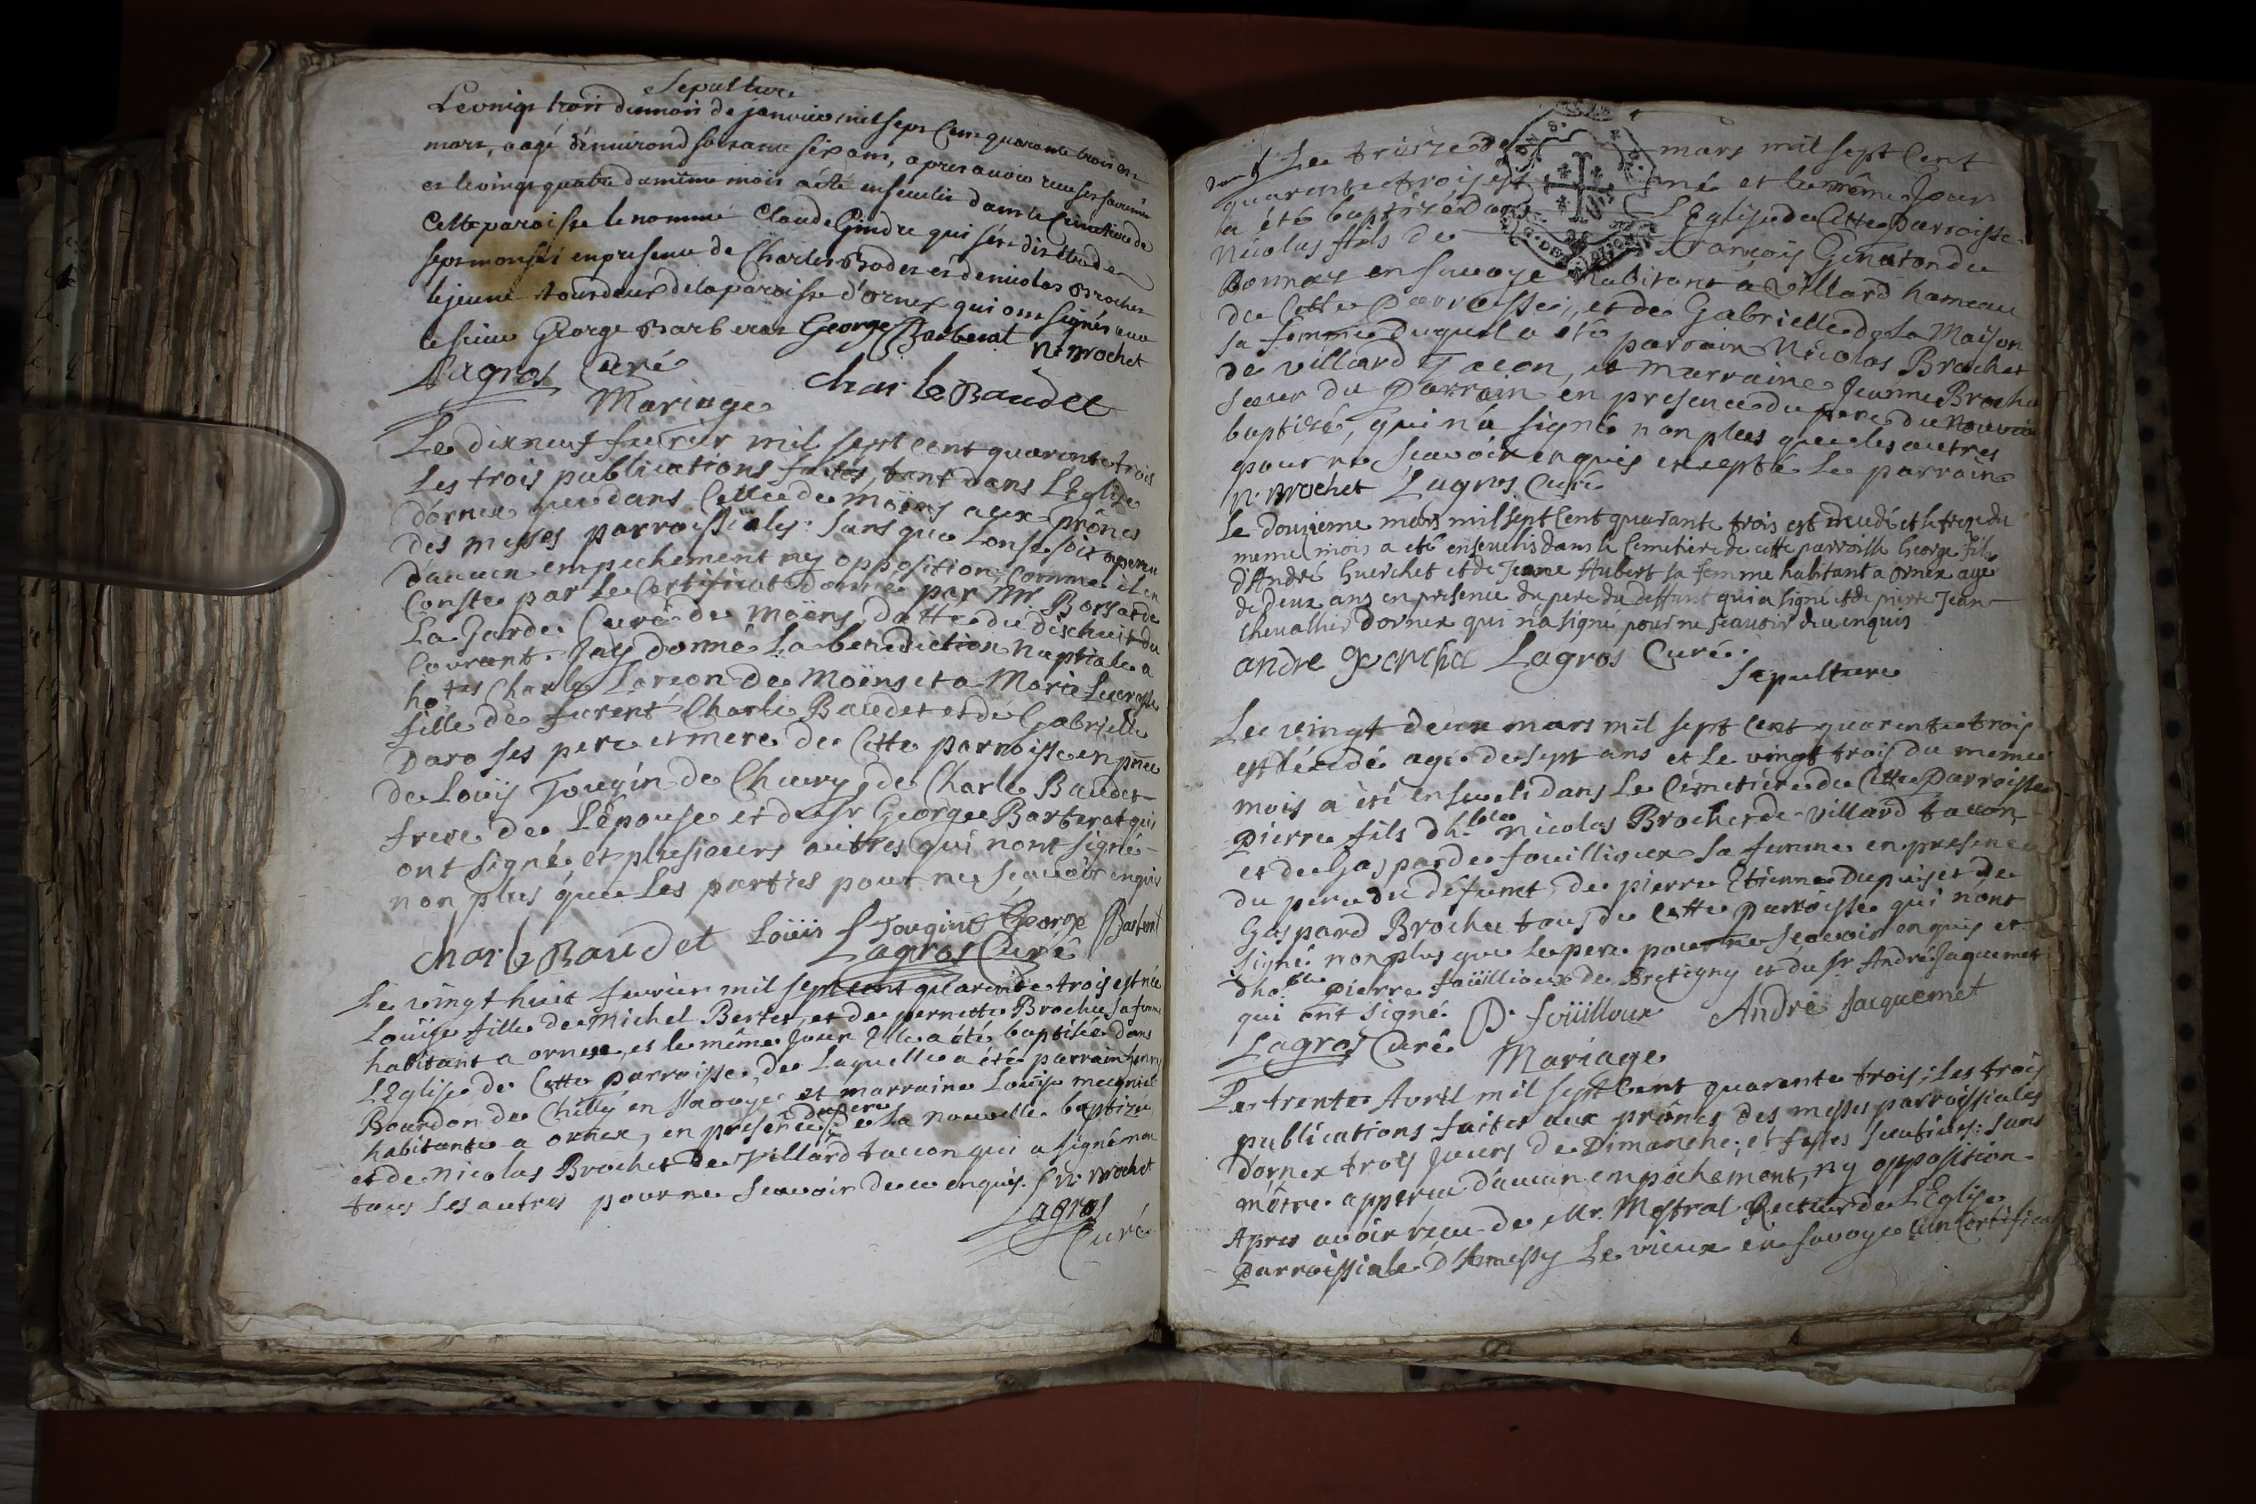 Sepulture
Le vingt trois du mois de janvier mil sept cent quarante trois est
mort, aagé d'environd soixante six ans, apres avoir receu ses sacrements
et le vingt quatre du mème mois a été enseveli dans le Cimetiere de
cette paroisse le nommé Claude Gindre qui
en presence de Charles Bodet et de nicolas Brochet
le jeune de la paroisse d'ornex qui ont signés avec
le sieur George Barberat George Barberat N. Brochet
Lagros Curé
charle Baudet
Mariage
Le dixneuf fevrier mil sept cent quarante trois
Les trois publications faites, tant dans L'Eglise
d'ornex que dans Celle de Moëns aux prônes
des messes parroissiales: sans que Lon se soit apperceu
d'aucun empechement ny opposition, comme il en
Conste par Le Certificat donné par Mr Borsat de
La Garde Curé de Moëns datté du dixhuit du
Courant. Jay donné La benediction nuptiale a
ho.tes Charle Larcon de Moëns et a Marie Lucresse
fille de furent Charle Baudet et de Gabrielle
Daro ses pere et mere de Cette parroisse en pnce
de Loüis Tougin de Chevry, de Charle Baudet
frere de L'Epouse et du Sr George Barberat qui
ont signé et plusieurs autres qui nont signé
non plus que Les parties pour ne scavoir enquis
charle Baudet Loüis Tougint George Barberat
Lagros Curé
Le vingt huit fevrier mil sept cent quarente trois est née
Louïse fille de Michel Bertet, et de pernette Brochu sa femme
habitant a ornex, et le même Jour Elle a été baptisée dans
L'Eglise de Cette parroisse, de Laquelle a été parrain henry
Bourdon de Chilly en Savoye et marraine Louïse meunier
habitante a ornex, en presence du pere de La nouvelle baptizée
et de Nicolas Brochet de Villard taccon qui a signé non
tous Les autres pour ne scavoir de ce enquis. N. Brochet
Lagros
Curé
Le treize de mars mil sept Cent
quarente trois est né et le même Jour
a été baptizé Dans L'Eglise de Cette Parroisse
Nicolas fils de François Genaton de
Bonnaz en Savoye habitant a Villard hameau
de Cette Parroisse, et de Gabrielle de La Maison
sa femme Duquel a été parrain Nicolas Brochet
de Villard Tacon, et marraine Jeanne Brochu
soeur du Parrain en presence du pere du nouveau
baptizé, qui n'a signé non plus que les autres
pour ne scavoir enquis excepté Le parrain
N. Brochet Lagros Curé
Le douzieme mars mil sept Cent quarante trois est decedé et le treze du
meme mois a eté ensevelis dans le Cemetiere de cette parroisse George fils
d'André Guerchet et de Jeanne Aubert sa femme habitant a ornex agé
de deux ans en presence du pere du deffunt qui a signé et de pierre Jean
Chevallier d'ornex qui n'a signé pour ne scavoir de ce enquis
andre Lagros Curé.
Sepulture
Le vingt deux mars mil sept cent quarente trois
est décédé agé de sept ans et Le vingt trois du meme
mois a été enseveli dans Le Cimetiere de Cette Parroisse
Pierre fils d'h.ble Nicolas Brochet de Villard taccon
et de Gasparde fouillioux sa femme en presence
du pere du defunt, de pierre Etienne Dupuis et de
Gaspard Brochu tous de Cette parroisse qui n'ont
signé non plus que le pere pour ne scavoir enquis et
d'ho.ble pierre fouïllioux de Bretigny et du Sr André Jaquemet
qui ont signé. P. foüilloux André Jacquemet
Lagros Curé
Mariage
Le trente Avril mil sept Cent quarente trois; Les trois
publications faites aux prônes des messes parroissiales
d'ornex trois Jours de Dimanche; et festes sans
m'être apperceu d'aucun empêchement, ny opposition
Apres avoir receu de Mr. Mestral Recteur de L'Eglise
Parroissiale D'Annessy Le vieux en Savoye un Certificat